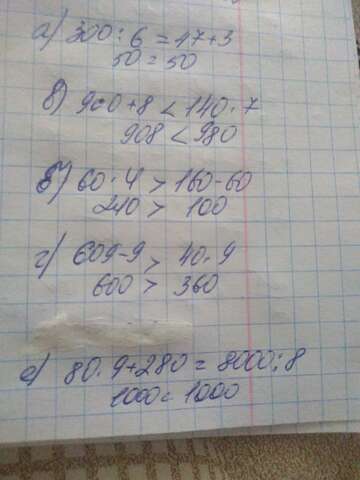 а) 300 : 6 = 47+3
50 = 50
в) 900+8 < 140 · 7
908 < 980
б) 60 · 4 > 160-60
240 > 100
г) 609-9 > 40 · 9
600 > 360
е) 80 · 9+280 = 8000 : 8
1000 = 1000